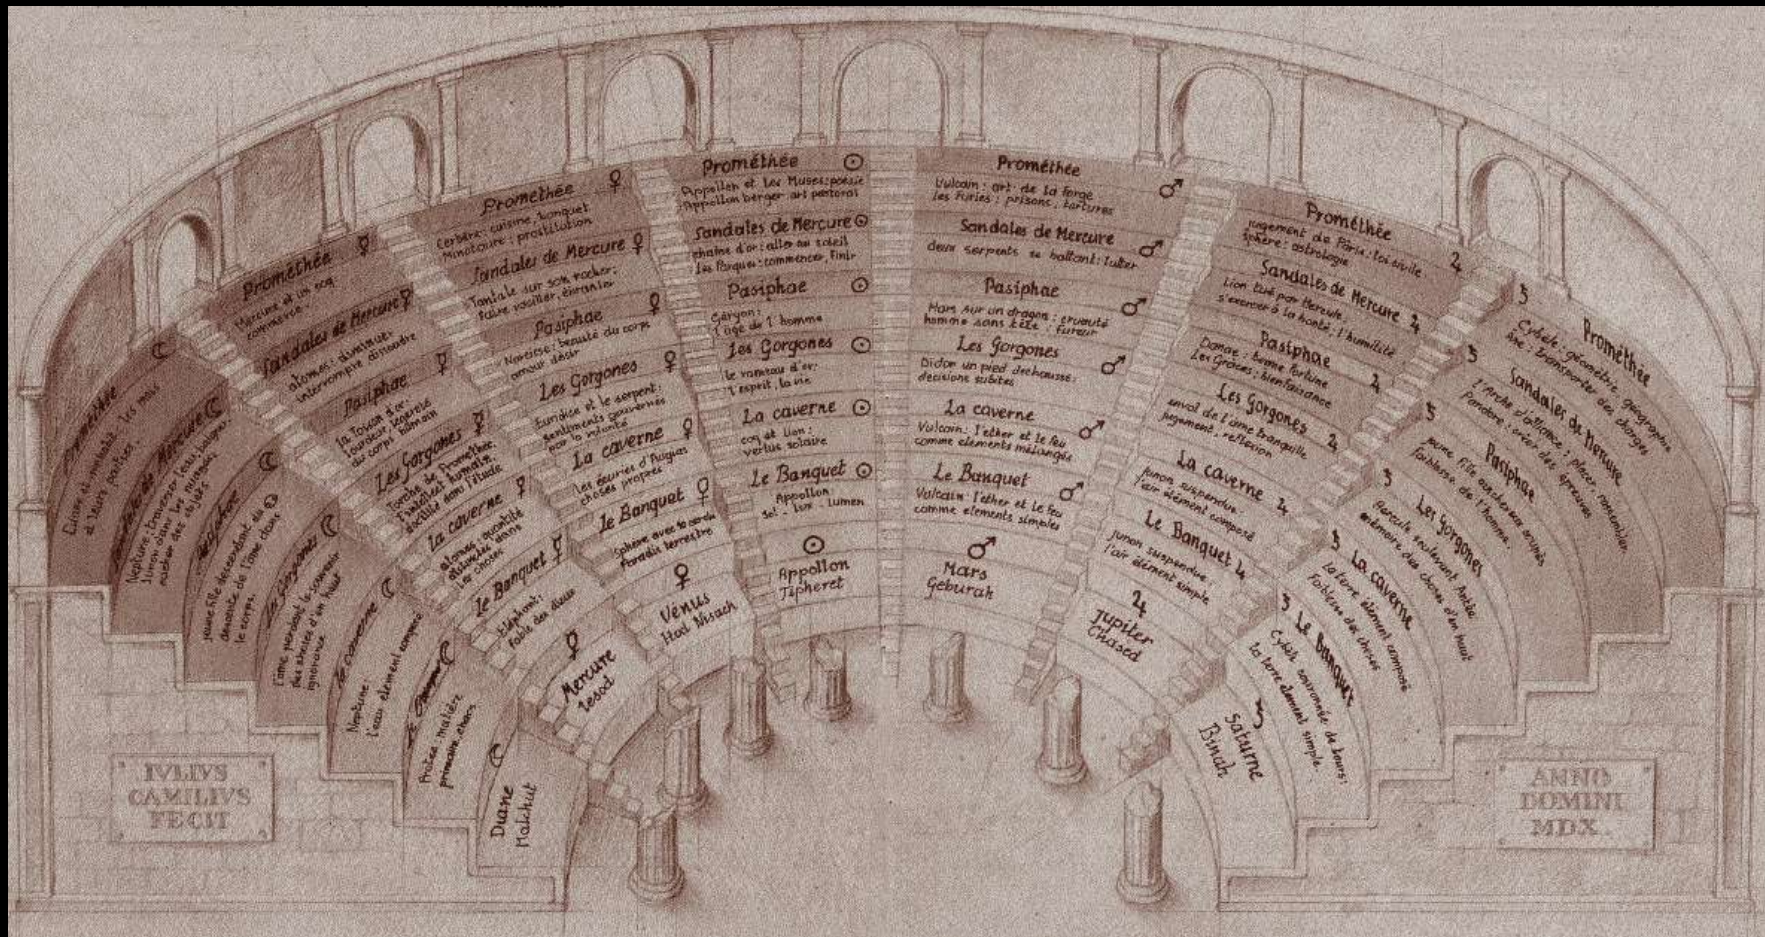 Prométhée ☾
Lune et
les mois
et leurs parties
Sandales de Mercure ☾
Neptune: traverser l'eau, baigner,
Junon dans les nuages:
cacher des objets
Pasiphae ☾
jeune fille descendant du
descente de l'âme dans
le corps.
Les Gorgones ☾
l'âme perdant le souvenir
des choses d'en haut
ignorance
La caverne ☾
Neptune:
l'eau élément composé
Le Banquet ☾
Protée: matière
primaire, chaos
☾
Diane
Malchut
Prométhée ☿
Mercure et un coq
commerce
Sandales de Mercure ☿
atomes: diminuer
interrompre dissoudre
Pasiphae ☿
la Toison d'or:
lourdeur, légereté
du corps humain
Les Gorgones ☿
Torche de Prométhée:
l'intellect humain,
docilité dans l'étude
La caverne ☿
atomes: quantité
dans
les choses
Le Banquet ☿
Eléphant:
fable des dieux
☿
Mercure
Iesod
Prométhée ♀
Cerbère: cuisine, banquet
Minotaure: prostitution
Sandales de Mercure ♀
Tantale sur son rocher:
faire vaciller, ébranler
Pasiphae ♀
Narcisse: beauté du corps
amour désir
Les Gorgones ♀
Euridice et le serpent:
sentiments gouvernés
par la volonté
La caverne ♀
les écuries d'Augias
choses propres
Le Banquet ♀
Sphère avec le cercle
Paradis terrestre
♀
Vénus
Hod Nisach
Prométhée ☉
Appollon et les Muses: poésie
Appollon berger: art pastoral
Sandales de Mercure ☉
chaîne d'or: aller au soleil
les Parques: commencer, finir
Pasiphae ☉
Géryon:
l'âge de l'homme
Les Gorgones ☉
le rameau d'or:
l'esprit, la vie
La caverne ☉
coq et lion:
vertus solaire
Le Banquet ☉
Appollon
Sol - Lux - Lumen
☉
Appollon
Tipheret
Prométhée ♂
Vulcain: art de la forge
les Furies: prisons, tortures
Sandales de Mercure ♂
deux serpents se battant: lutter
Pasiphae ♂
Mars sur un dragon: cruauté
homme sans tête: fureur
Les Gorgones ♂
Didon un pied dechaussé:
decisions subites
La caverne ♂
Vulcain: l'ether et le feu
comme elements mélangés
Le Banquet ♂
Vulcain: l'ether et le feu
comme elements simples
♂
Mars
Geburah
Prométhée ♃
jugement de Pâris: loi civile
sphère: astrologie
Sandales de Mercure ♃
Lion tué par Hercule:
s'exercer à la bonté, l'humilité
Pasiphae ♃
Danae: bonne fortune
Les Grâces: bienfaisance
Les Gorgones ♃
envol de l'âme tranquille
jugement, reflexion
La caverne ♃
junon suspendue:
l'air élément composé
Le Banquet ♃
junon suspendue:
l'air élément simple
♃
Jupiter
Chased
Prométhée ♄
Cybèle: géométrie, géographie
âne: transporter des charges
Sandales de Mercure ♄
l'Arche d'alliance: placer, rassembler
Pandore: créer des épreuves
Pasiphae ♄
jeune fille
faiblesse de l'homme.
Les Gorgones ♄
Hercule soulevant Antée
mémoire des choses d'en haut
La caverne ♄
la terre élément composé
Faiblesse des choses
Le Banquet ♄
Cybèle couronnée de tours:
la terre élément simple.
♄
Saturne
Binah
IVLIVS
CAMILIVS
FECIT
ANNO
DOMINI
MDX.